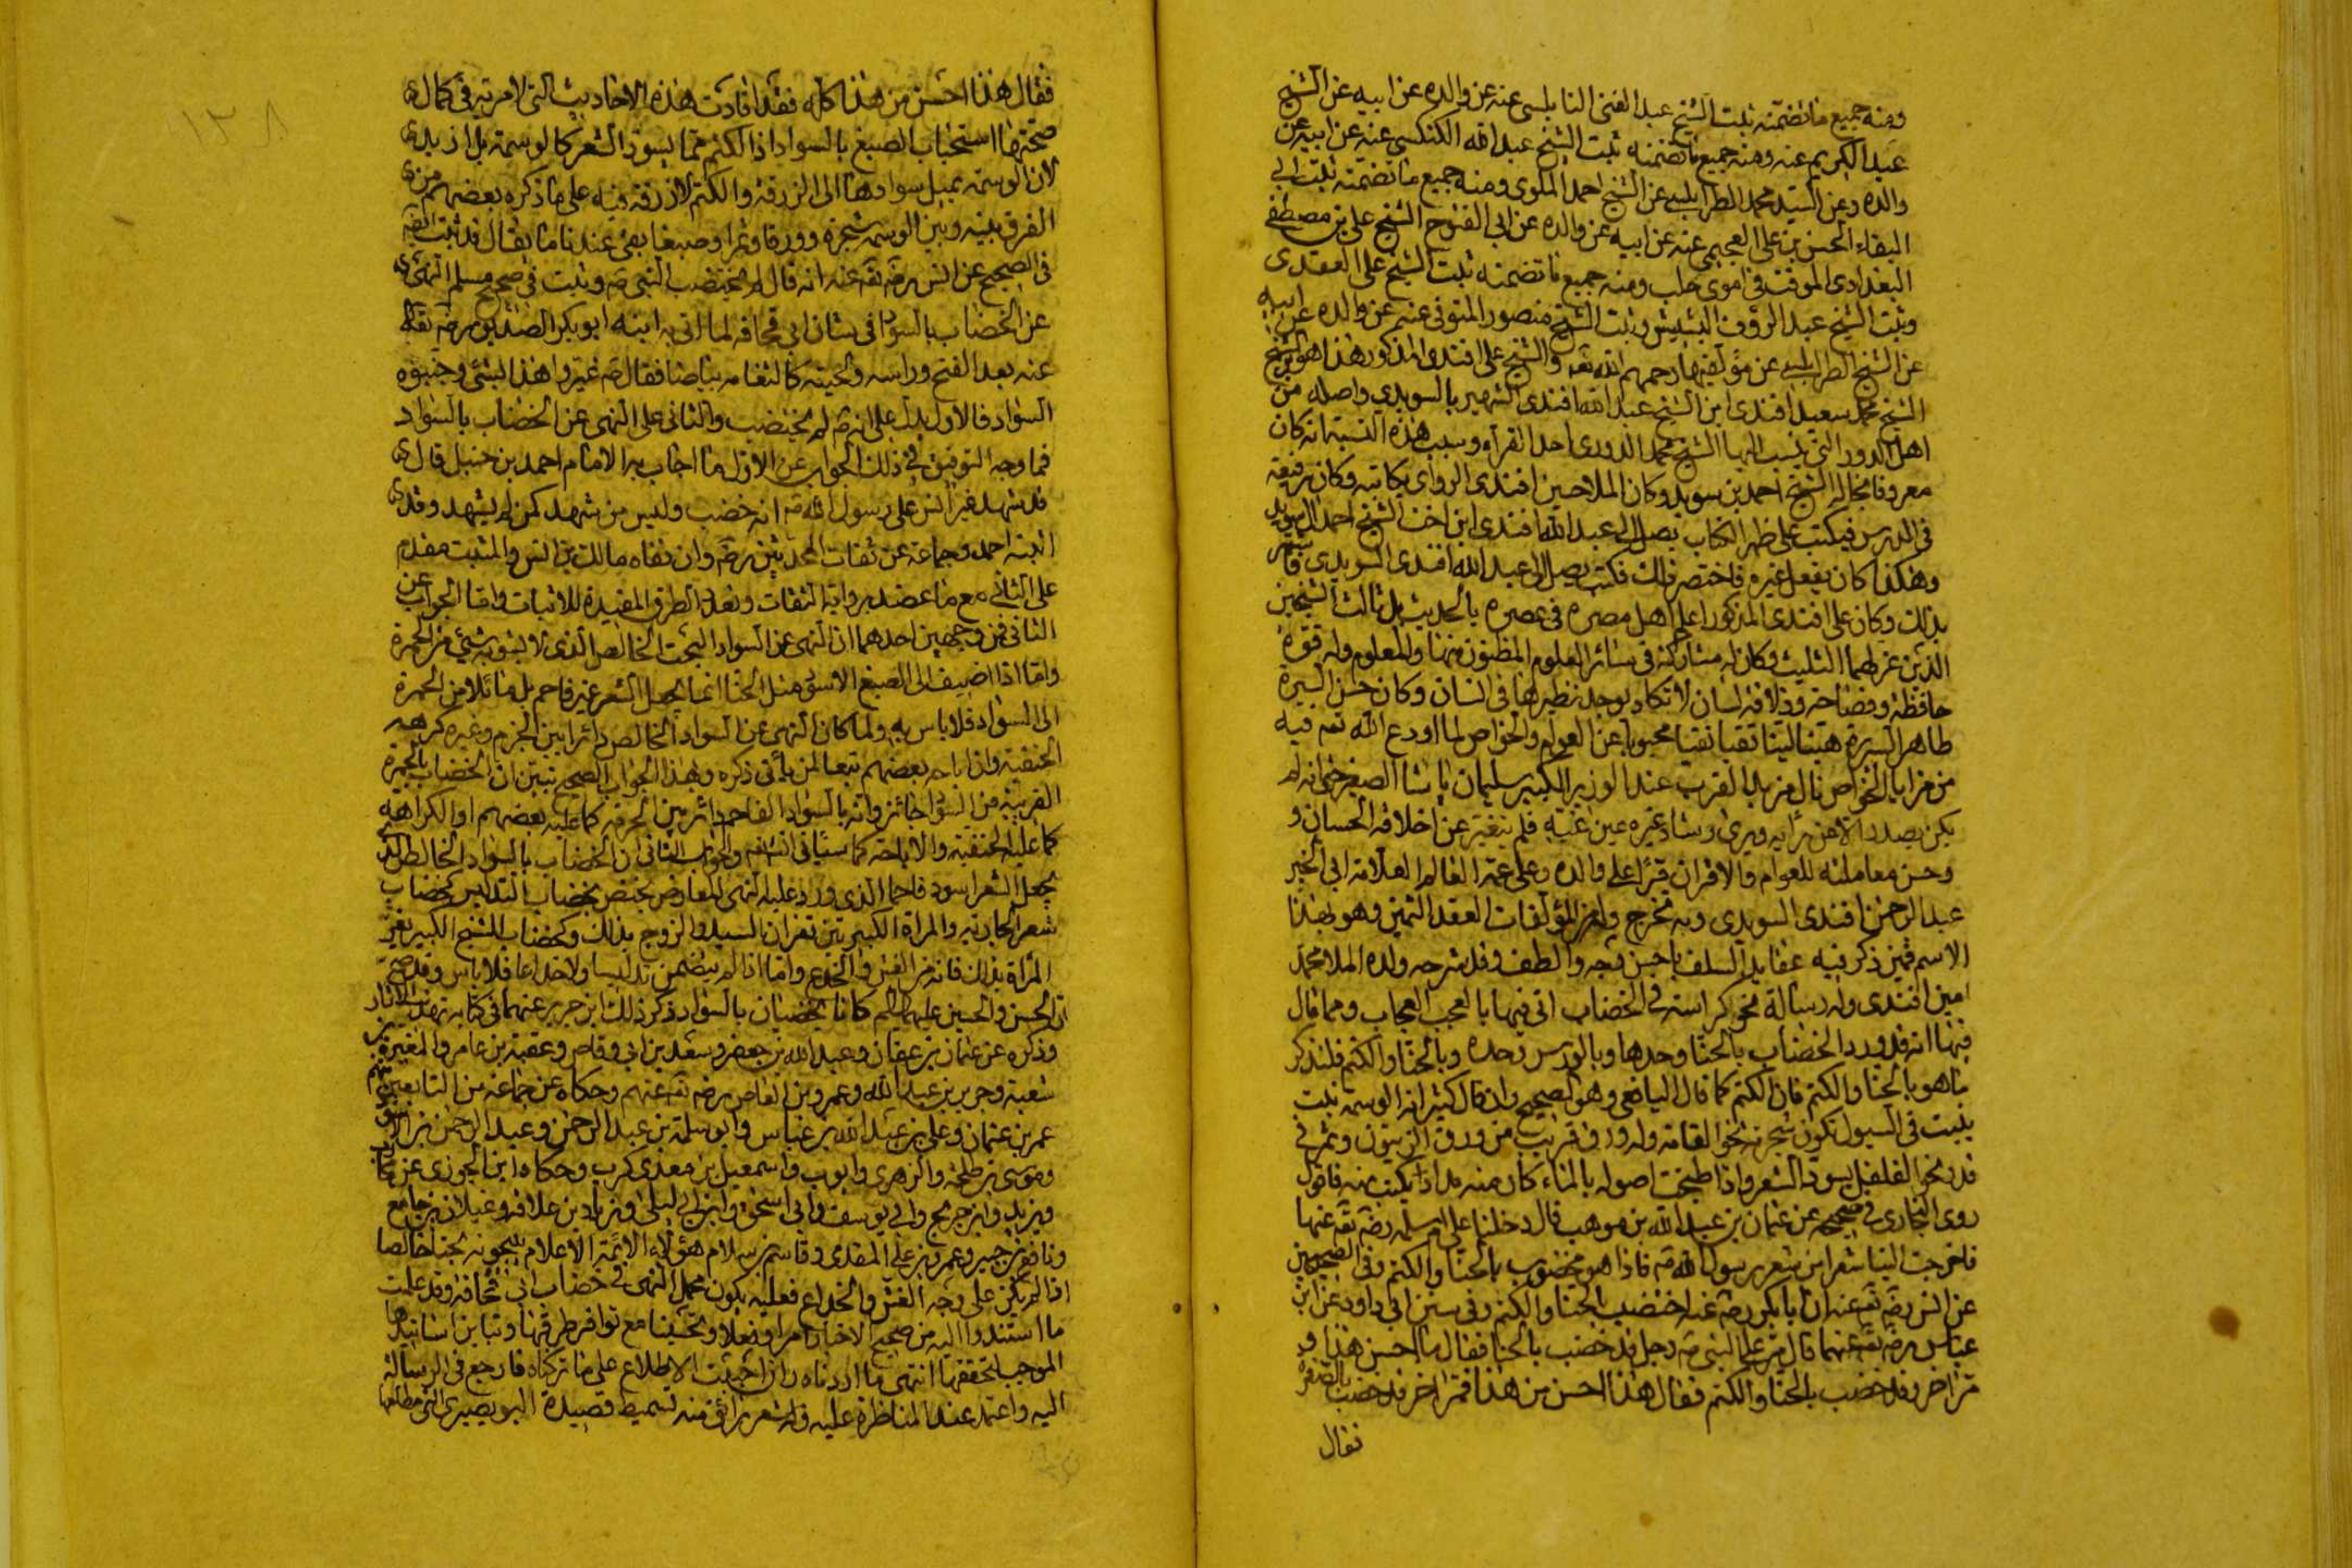 ومنه جميع ما تضمنته ثبت الشيخ عبد الغنى النابلسى عنه عن والده عن ابيه عن الشيخ
عبد الكريم عنه ومنه جميع ما تضمنه ثبت الشيخ عبد الله الكنكسى عنه عن ابيه عن
والده وعن السيد محمد الطرابلسى عن الشيخ احمد الملوى ومنه جميع ما تضمنته ثبت ابى
البقاء الحسن بن على العجيمى عنه عن ابيه عن والده عن ابى الفتوح الشيخ على بن مصطفى
البغدادى الموقت فى اموى حلب ومنه جميع ما تضمنه ثبت الشيخ على العقدى
وثبت الشيخ عبد الرؤف البشبيشى وثبت الشيخ منصور المنوفى عنهم عن والده عن ابيه
عن الشيخ الطرابلسى عن مؤلفيها رحمهم الله تعه والشيخ على افندى المذكور هذا هو ابن الشيخ
الشيخ محمد سعيد افندى ابن الشيخ عبد الله افندى الشهير بالسويدى واصله من
اهل الدور التى ينسب اليها الشيخ محمد الدورى احد القرآء وسبب هذه النسبة انه كان
معروفا بخاله الشيخ احمد بن سويد وكان الملا حسين افندى الراوى يكاتبه وكان رفيقه
فى الدرس فيكتب على ظهر الكتاب يصل الى عبد الله افندى ابن اخت الشيخ احمد السويد
وهكذا كان يفعل غيره فاختصر ذلك فكتب يصل الى عبد الله افندى السويدى فاشتهر
بذلك وكان على افندى المذكور اعلم اهل مصره فى عصره بالحديث بل ثالث الشيخين
الذين عز لهما التثليث وكان له مشاركة فى سائر العلوم المظنون منها والمعلوم وله قوة
حافظة وفصاحة وذلاقة لسان لا تكاد يوجد نظيرها فى انسان وكان حسن السيرة
طاهر السريرة هينا لينا تقيا نقيا محبوبا عن العوام والخواص لما اودع الله تعه فيه
من مزايا الخواص نال مزيد القرب عند الوزير الكبير سليمان باشا الصغير حتى انه لم
يكن يصدر الا عن رأيه ويرى رشاد غيره عين غيه فلم يتغير عن اخلاقه الحسان و
وحسن معاملته للعوام والاقران قرأ على والده وعلى عمه العالم العلامة ابى الخير
عبد الرحمن افندى السويدى وبه تخرج وله من المؤلفات العقد الثمين وهو بهذا
الاسم قمين ذكر فيه عقايد السلف باحسن وجه والطف وقد شرحه ولده الملا محمد
امين افندى وله رسالة نحو كراسة فى الخضاب اتى فيها بالعجب العجاب ومما قال
فيها انه قد ورد الخضاب بالحنا وحدها وبالورس وحده وبالحنا والكتم فلنذكر
ما هو بالحنا والكتم فان الكتم كما قال اليافعى وهو الصحيح وان قال كثير انه الوسمة نبت
ينبت فى السهول تكون شجرته نحو القامة وله ورق قريب من ورق الزيتون وثمر فى
قدر نحو الفلفل يسود الشعر واذا طبخت اصوله بالماء كان منه مداد يكتب به فاقول
روى البخارى فى صحيحه عن عثمان بن عبد الله بن موهب قال دخلنا على ام سلمه رضه تعه عنها
فاخرجت الينا شعرا من شعر رسول الله صه فاذا هو مخضوب بالحنا والكتم وفى الصحيحين
عن انس رضه تعه عنه ان ابا بكر رضه عنه اختضب بالحنا والكتم وفى سنن ابى داود عن ابن
عباس رضه تعه عنهما قال مر على النبى صه رجل قد خضب بالحنا فقال ما احسن هذا و
مر اخر وقد خضب بالحنا والكتم فقال هذا احسن من هذا فمر اخر قد خضب بالصفرة
فقال
١٣٨
فقال هذا احسن من هذا كله فقد افادت هذه الاحاديث التى لا مرية فى كمال
صحتها استحباب الصبغ بالسواد اذ الكتم مما يسود الشعر كالوسمة بل ازيد
لان الوسمة يميل سوادها الى الزرقة والكتم لا زرقة فيه على ما ذكره بعضهم من
الفرق بينه وبين الوسمة شجرة وورقا وثمرا وصبغا بقى عندنا ما يقال قد ثبت ايضه
فى الصحيح عن انس رضه تعه عنه انه قال لم يختضب النبى صه وثبت فى صحيح مسلم النهى
عن الخضاب بالسواد فى شان ابى قحافه لما اتى به ابنه ابو بكر الصديق رضه تعه
عنه بعد الفتح وراسه ولحيته كالثغامه بياضا فقال صه غيروا هذا بشئ وجنبوه
السواد فالاول يدل على انه صه لم يختضب والثانى على النهى عن الخضاب بالسواد
فما وجه التوفيق فى ذلك الجواب عن الاول ما اجاب به الامام احمد بن حنبل قال
قد شهد غير انس على رسول الله صه انه خضب وليس من شهد كمن لم يشهد وقد
اثبته احمد وجماعة عن ثقات المحدثين رضه وان نفاه مالك بن انس والمثبت مقدم
على الثانى مع ما عضد برواية الثقات وتعدد الطرق المفيدة للاثبات واما الجواب عن
الثانى فمن وجهين احدهما ان النهى عن السواد البحت الخالص الذى لا يشوبه شئ من الحمرة
واما اذا اضيف الى الصبغ الاسود مثل الحنا انما يجعل الشعر غير فاحم بل مائلا من الحمرة
الى السواد فلا باس به ولما كان النهى عن السواد الخالص دائرا بين الجزم وغيره كرهه
الحنفية وان اباحه بعضهم تبعا لمن يأتى ذكره وبهذا الجواب الصحيح تبين ان الخضاب بالحمرة
القريبة من السواد جائز وانه بالسواد الفاحم دائر بين الحرمة كما عليه بعضهم او الكراهة
كما عليه الحنفية والاباحة كما سيأتى ان شاء الله والجواب الثانى ان الخضاب بالسواد الخالص الذى
يجعل الشعر اسود فاحما الذى ورد عليه النهى المعارض يختص بخضاب التدليس كخضاب
شعر الجارية والمراة الكبيرتين تغران السيد والزوج بذلك وكخضاب الشيخ الكبير يغر
المراة بذلك فانه من الغش والخدع واما اذا لم يتضمن تدليسا ولا خداعا فلا باس وقد صح
ان الحسن والحسين عليهما السلم كانا يخضبان بالسواد ذكر ذلك ابن جرير عنهما فى كتابه تهذيب الاثار
وذكره عن عثمان بن عفان وعبد الله بن جعفر وسعد بن ابى وقاص وعقبة بن عامر والمغيرة بن
شعبة وجرير بن عبد الله وعمرو بن العاص رضه تعه عنهم وحكاه عن جماعة من التابعين منهم
عمر بن عثمان وعلى بن عبد الله بن عباس وابو سلمة بن عبد الرحمن وعبد الرحمن بن الاسود
وموسى بن طلحة والزهرى وايوب واسمعيل بن معدى كرب وحكاه ابن الجوزى عن محارب
ويزيد وابن جريج وابى يوسف وابى اسحق وابن ابى ليلى وزياد بن علاقة وغيلان بن جامع
ونافع بن جبير وعمرو بن على المقدمى وقاسم بن سلام هؤلاء الائمة الاعلام يبيحونه بحتا خالصا
اذا لم يكن على وجه الغش والخداع فعليه يكون محمل النهى فى خضاب ابى قحافة وقد علمت
ما استندوا اليه من صحيح الاخبار امرا وفعلا وتحسينا مع توافر طرقها وتباين اسانيدها
الموجب لتحققها انتهى ما اردناه وان احببت الاطلاع على ما تركناه فارجع فى الرسالة
اليه واعتمد عند المناظرة عليه وله شعر رائق منه تسميط قصيدة البويصيرى التى مطلعها